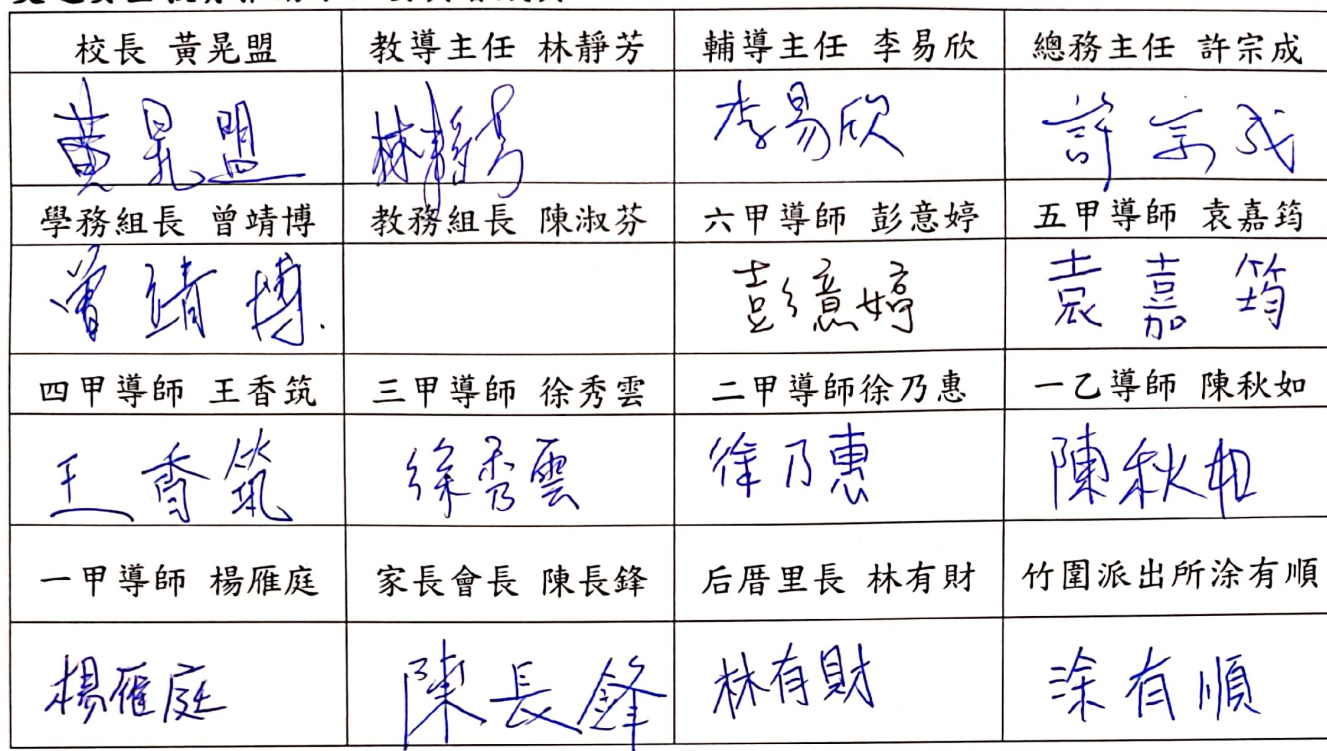 校長 黃晃盟 教導主任 林靜芳 輔導主任 李易欣 總務主任 許宗成
黃晃盟 林靜芳 李易欣 許宗成
學務組長 曾靖博 教務組長 陳淑芬 六甲導師 彭意婷 五甲導師 袁嘉筠
曾靖博 彭意婷 袁嘉筠
四甲導師 王香筑 三甲導師 徐秀雲 二甲導師徐乃惠 一乙導師 陳秋如
王香筑 徐秀雲 徐乃惠 陳秋如
一甲導師 楊雁庭 家長會長 陳長鋒 后厝里長 林有財 竹圍派出所涂有順
楊雁庭 陳長鋒 林有財 涂有順